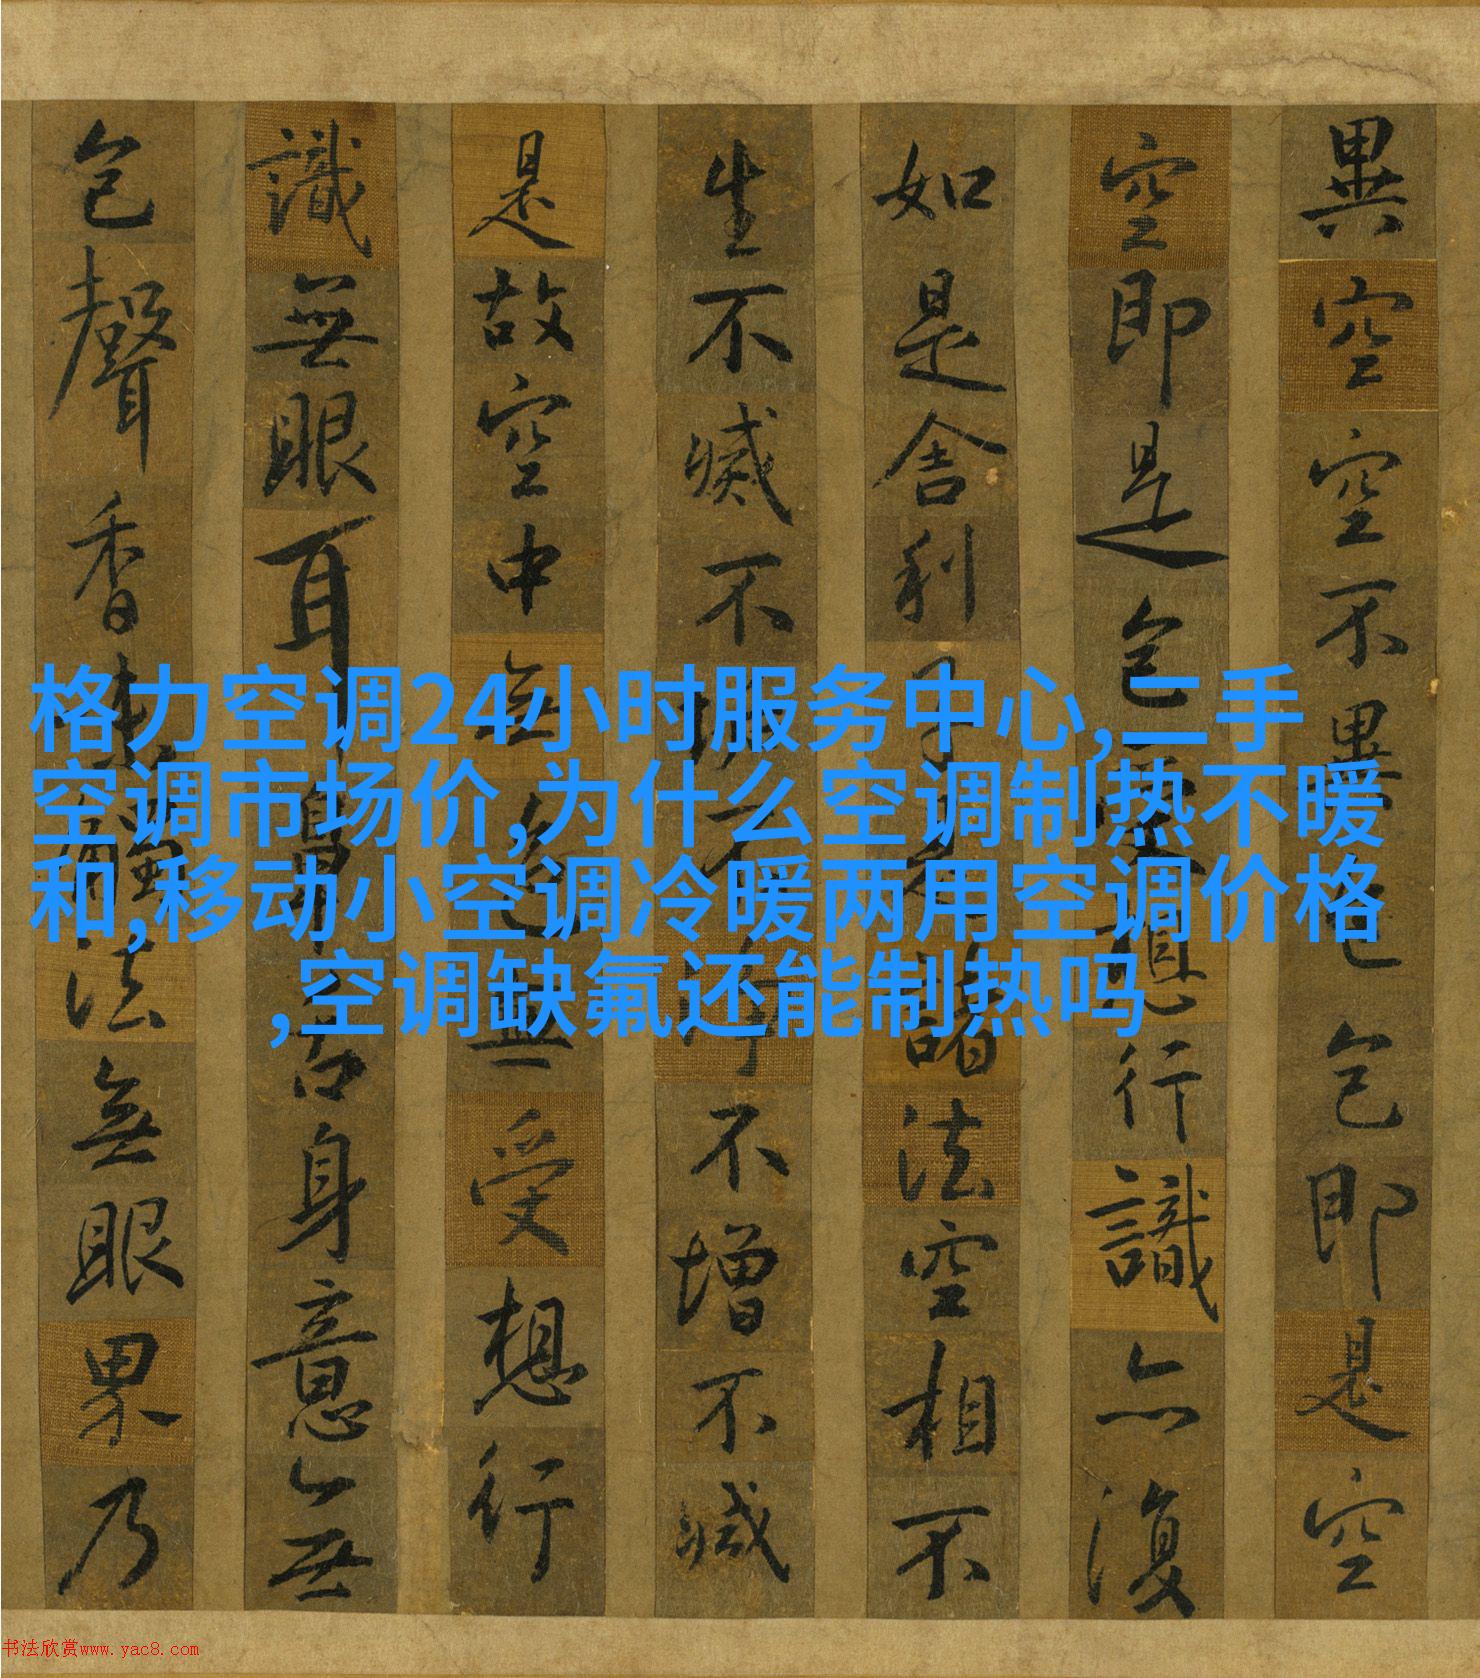 異空空不異色色即是空
空即是色受想行識亦復
如是舍利子是諸法空相不
生不滅不垢不淨不增不減
是故空中無色無受想行
識無眼耳鼻舌身意無
色聲香味觸法無眼界乃
格力空调24小时服务中心,二手
空调市场价,为什么空调制热不暖
和,移动小空调冷暖两用空调价格
,空调缺氟还能制热吗
书法欣赏www.yac8.com